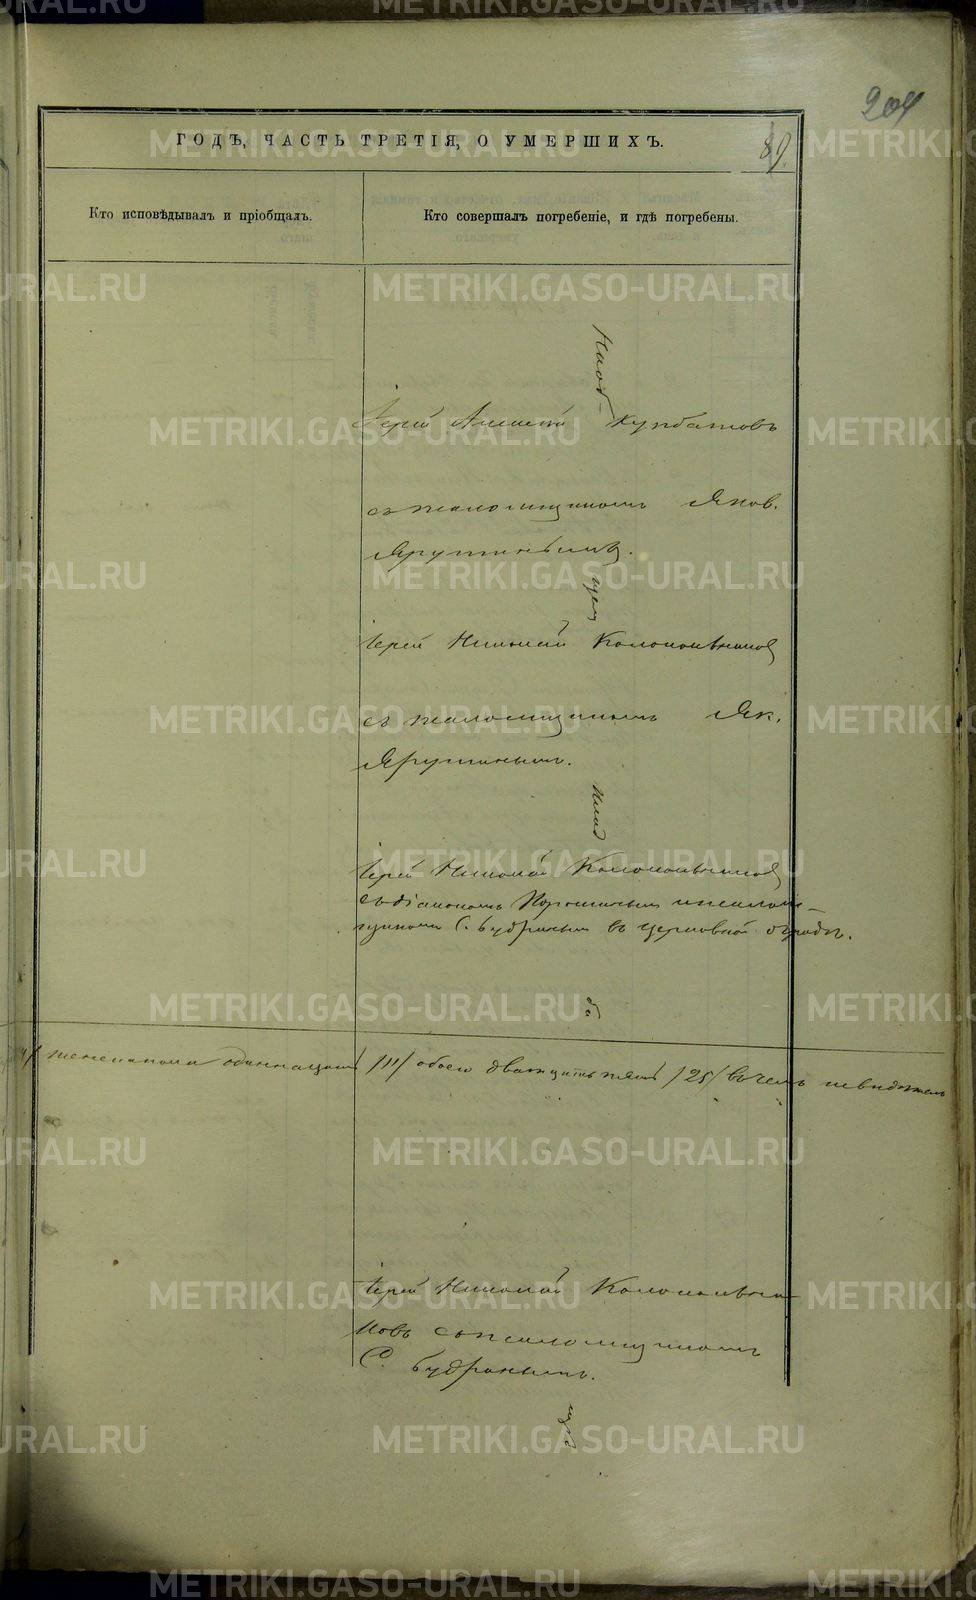 204
ГОДЪ, ЧАСТЬ ТРЕТІЯ, О УМЕРШИХЪ.
89.
Кто исповѣдывалъ и пріобщалъ.
Кто совершалъ погребеніе, и гдѣ погребены.
Іерей Алексій Курбатовъ
съ псаломщикомъ Яков.
Ярутинымъ.
Іерей Николай Колокольниковъ
съ псаломщикомъ Як.
Ярутинымъ.
Іерей Николай Колокольниковъ
съ діакономъ и псалом-
щикомъ С. Будринымъ въ церковной оградѣ.
женскаго одиннадцать /11/ обоего двадцать пять /25/ въ чемъ
Іерей Николай Колокольни-
ковъ съ псаломщикомъ
С. Будринымъ.
METRIKI.GASO-URAL.RU